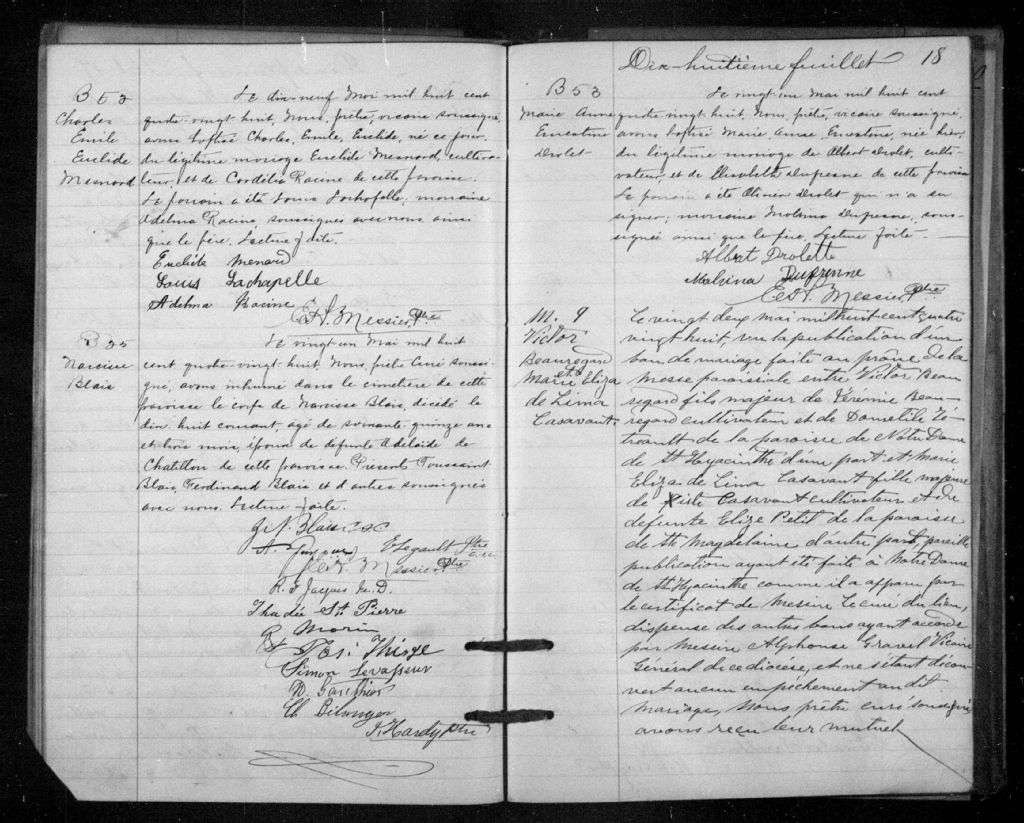 B 53
Charles
Emile
Euclide
Mesnard
Le dix-neuf Mai mil huit cent
quatre-vingt-huit, Nous, prêtre, vicaire soussigné,
avons baptisé Charles, Emile, Euclide, né ce jour
du légitime mariage Euclide Mesnard, cultiva-
teur, et de Cordélia Racine de cette paroisse.
Le parrain a été Louis Lachapelle, marraine
Adelma Racine, soussignés avec nous ainsi
que le père. Lecture faite.
Euclide Menard
Louis Lachapelle
Adelma Racine
E. H. Messier, Ptre
Narcisse
Blais
Le vingt-un Mai mil huit
cent quatre-vingt-huit. Nous, prêtre Curé soussi-
gné, avons inhumé dans le cimetière de cette
paroisse le corps de Narcisse Blais, décédé le
dix-huit courant agé de soixante quinze ans
et trois mois, époux de défunte Adelaide de
Chatillon de cette paroisse. Présents Toussaint
Blais, Ferdinand Blais et d'autres soussignés
avec nous. Lecture faite.
Legault Ptre
Messier, Ptre
R. J Jacques M. D.
Thadée St Pierre
Morin
Simon Levasseur
Hardy ptre
Dix-huitième feuillet 18
B 53
Marie Anne
Ernestine
Drolet
Le vingt-un Mai mil huit cent
quatre vingt huit, Nous, prêtre, vicaire soussigné,
avons baptisé Marie Anne Ernestine, née hier,
du légitime mariage de Albert Drolet, culti-
vateur, et de Elisabeth Dufresne de cette paroisse
Le parrain a été Olivier Drolet qui n'a su
signer; marraine Malvina Dufresne, sous-
signée ainsi que le père. Lecture faite.
Albert Drolett
Malvina Dufrenne
E. H. Messier, Ptre
M. 9
Victor
Beauregard
et
Marie Eliza
de Lima
Casavant
Le vingt deux mai mil huit cent quatre
vingt huit, vu la publication d'un
ban de mariage faite au prône de la
messe paroissiale entre Victor Beau
regard fils majeur de Jérémie Beau-
regard cultivateur et de Dometilde Té-
treault de la paroisse de Notre Dame
de St Hyacinthe d'une part et Marie
Eliza de Lima Casavant fille majeure
de Casavant cultivateur et de
défunte Elize Petit de la paroisse
de Ste Magdelaine d'autre part, pareille
publication ayant été faite à Notre Dame
de St Hyacinthe comme il a apparu par
le certificat de Messire Le curé du lieu,
dispense des autres bans ayant accordé
par Messire Alphonse Gravel Vicaire
Général de ce diocèse, et ne s'étant décou-
vert aucun empêchement au dit
mariage, Nous prêtre curé soussigné
avons reçu leur mutuel